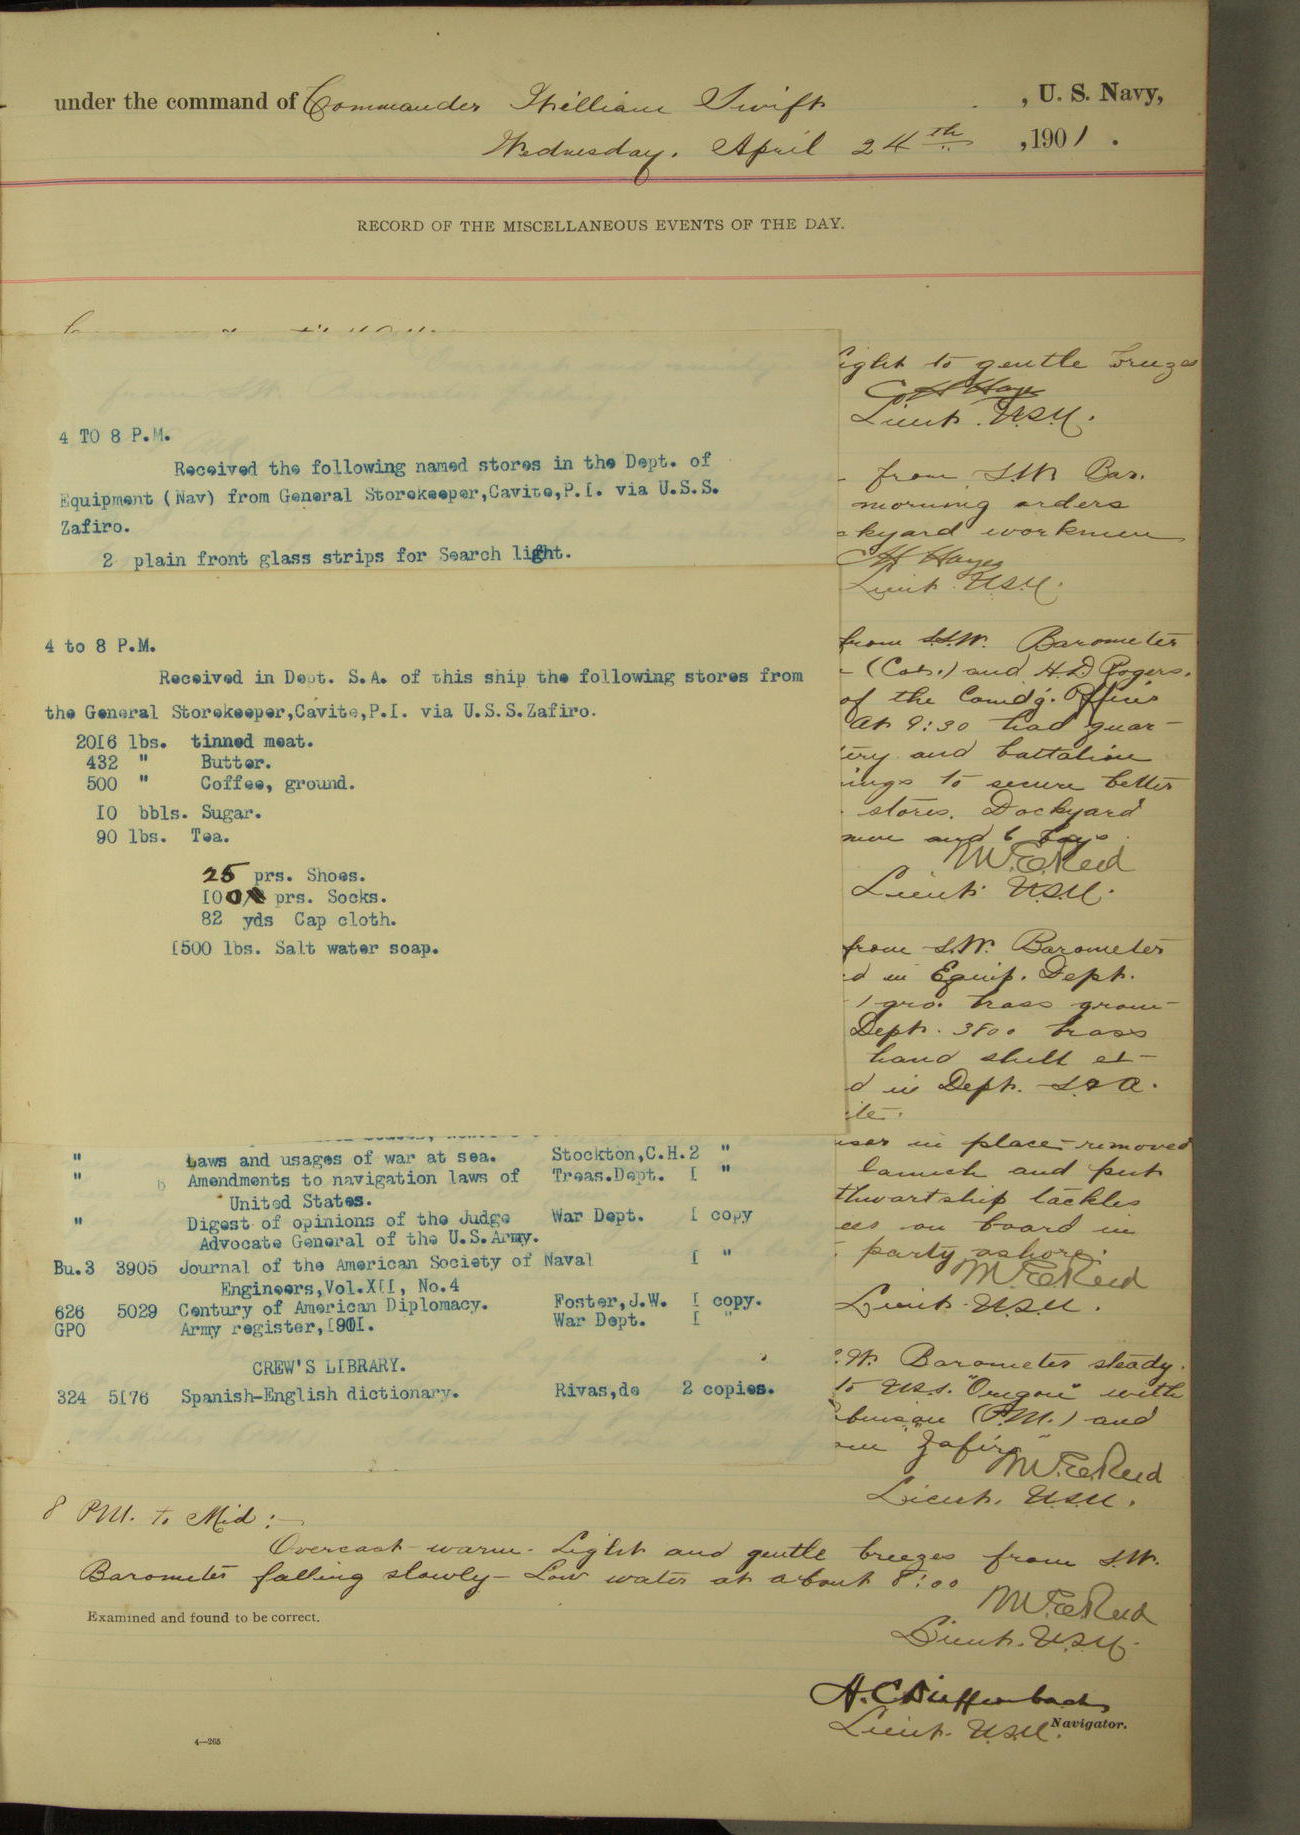 under the command of Commander William Swift , U. S. Navy,
Wednesday. April 24th , 1901 .
RECORD OF THE MISCELLANEOUS EVENTS OF THE DAY.
light to gentle breezes
C H Hayes
Lieut. U.S.N.
4 TO 8 P.M.
Received the following named stores in the Dept. of
Equipment (Nav) from General Storekeeper,Cavite,P.I. via U.S.S.
Zafiro.
2 plain front glass strips for Search light.
from S.W. Bar.
morning orders
ckyard workmen
C H Hayes
Lieut. U.S.N.
4 to 8 P.M.
Received in Dept. S.A. of this ship the following stores from
the General Storekeeper,Cavite,P.I. via U.S.S.Zafiro.
2016 lbs. tinned meat.
432 " Butter.
500 " Coffee, ground.
10 bbls. Sugar.
90 lbs. Tea.
25 prs. Shoes.
100 prs. Socks.
82 yds Cap cloth.
1500 lbs. Salt water soap.
from S.S.W. Barometer
(Cots.) and H.D Rogers.
of the Comdg. Officer
At 9:30 had quar-
tery and battalion
ings to secure better
stores. Dockyard
men and 6 boys.
M.E.Reed
Lieut. U.S.N.
from S.W. Barometer
d in Equip. Dept.
1 gro. brass grom-
Dept. 3800 brass
hand shell ex-
d in Dept. S. & A.
ite.
" Laws and usages of war at sea. Stockton,C.H.2 "
" Amendments to navigation laws of Treas.Dept. 1 "
United States.
" Digest of opinions of the Judge War Dept. 1 copy
Advocate General of the U.S.Army.
Bu.3 3905 Journal of the American Society of Naval 1 "
Engineers,Vol.XII, No.4
626 5029 Century of American Diplomacy. Foster,J.W. 1 copy.
GPO Army register,1901. War Dept. 1 "
CREW'S LIBRARY.
324 5176 Spanish-English dictionary. Rivas,de 2 copies.
in place - removed
launch and put
thwartship tackles
on board in
party ashore.
M.E.Reed
Lieut. U.S.N.
S.W. Barometer steady.
to U.S.S. "Oregon" with
(P.M.) and
"Zafiro"
M.E.Reed
Lieut. U.S.N.
8 P.M. to Mid:-
Overcast - warm - Light and gentle breezes from S.W.
Barometer falling slowly - Low water at about 8:00
M.E.Reed
Lieut. U.S.N.
Examined and found to be correct.
A.C.Dieffenbach
Lieut. U.S.N. Navigator.
4—265